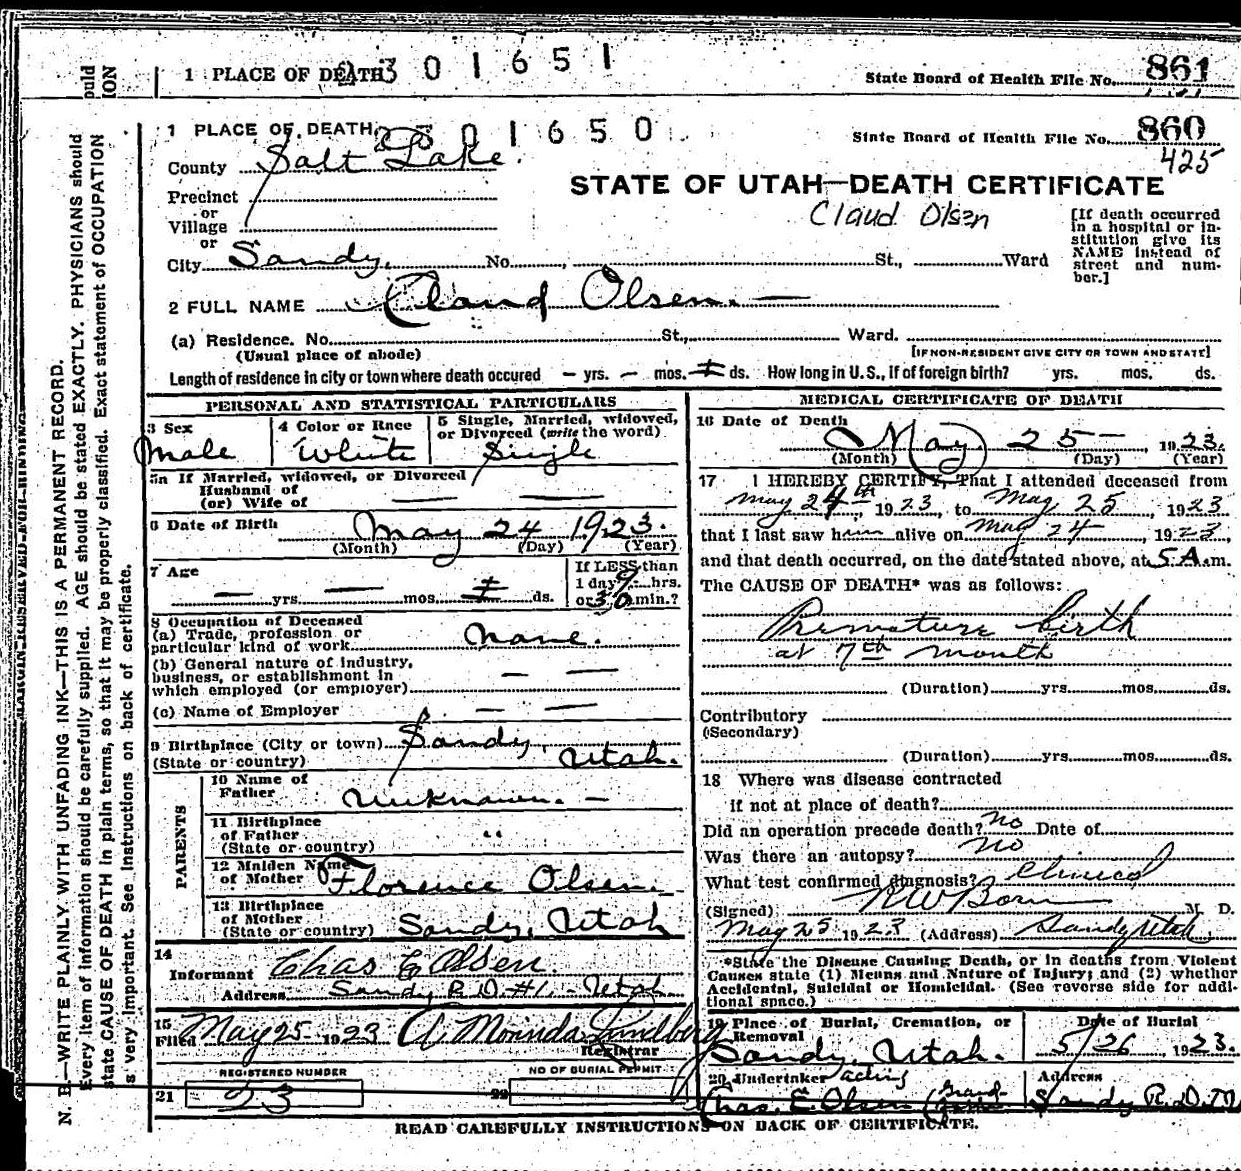 1 PLACE OF DEATH 2301651
State Board of Health File No. 861
1 PLACE OF DEATH 2301650
State Board of Health File No. 860
425
County Salt Lake.
STATE OF UTAH—DEATH CERTIFICATE
Precinct
or
Village
or
Claud Olsen
[If death occurred
in a hospital or in-
stitution give its
NAME instead of
street and num-
ber.]
City Sandy, No. , St., Ward
2 FULL NAME Claud Olsen. —
(a) Residence. No. St., Ward.
(Usual place of abode) [IF NON-RESIDENT GIVE CITY OR TOWN AND STATE]
Length of residence in city or town where death occured — yrs. — mos. ds. How long in U. S., if of foreign birth? yrs. mos. ds.
PERSONAL AND STATISTICAL PARTICULARS
3 Sex
Male
4 Color or Race
White
5 Single, Married, widowed,
or Divorced (write the word)
Single
5a If Married, widowed, or Divorced
Husband of
(or) Wife of — —
6 Date of Birth May 24 1923.
(Month) (Day) (Year)
7 Age
— yrs — mos. ds.
If LESS than
1 day 9 hrs.
or 30 min.?
8 Occupation of Deceased
(a) Trade, profession or
particular kind of work None.
(b) General nature of industry,
business, or establishment in
which employed (or employer) — —
(c) Name of Employer — —
9 Birthplace (City or town) Sandy,
(State or country) Utah.
PARENTS
10 Name of
Father Unknown. —
11 Birthplace
of Father "
(State or country)
12 Maiden Name
of Mother Florence Olsen.
13 Birthplace
of Mother
(State or country) Sandy, Utah
14
Informant Chas E Olsen.
Address Sandy R.D. #1. - Utah
15
Filed May 25 1923 A. Morinda Lundberg
Registrar
REGISTERED NUMBER
21 23
NO OF BURIAL PERMIT
22
MEDICAL CERTIFICATE OF DEATH
16 Date of Death
May 25— 1923.
(Month) (Day) (Year)
17 I HEREBY CERTIFY, That I attended deceased from
May 24th, 1923, to May 25, 1923
that I last saw him alive on May 24, 1923,
and that death occurred, on the date stated above, at 5 A.m.
The CAUSE OF DEATH* was as follows:
Premature birth
at 7th month
(Duration) yrs. mos. ds.
Contributory
(Secondary)
(Duration) yrs. mos. ds.
18 Where was disease contracted
if not at place of death?
Did an operation precede death? No Date of
Was there an autopsy? No
What test confirmed diagnosis? Clinical
(Signed) M. D.
May 25 1923 (Address) Sandy Utah.
*State the Disease Causing Death, or in deaths from Violent
Causes state (1) Means and Nature of Injury; and (2) whether
Accidental, Suicidal or Homicidal. (See reverse side for addi-
tional space.)
19 Place of Burial, Cremation, or
Removal
Sandy, Utah.
Date of Burial
5/26, 1923.
20 Undertaker acting
Chas. E. Olsen
Address
Sandy R.D.
READ CAREFULLY INSTRUCTIONS ON BACK OF CERTIFICATE.
ould
ION
MARGIN RESERVED FOR BINDING
N. B.—WRITE PLAINLY WITH UNFADING INK—THIS IS A PERMANENT RECORD.
Every item of information should be carefully supplied. AGE should be stated EXACTLY. PHYSICIANS should
state CAUSE OF DEATH in plain terms, so that it may be properly classified. Exact statement of OCCUPATION
is very important. See instructions on back of certificate.